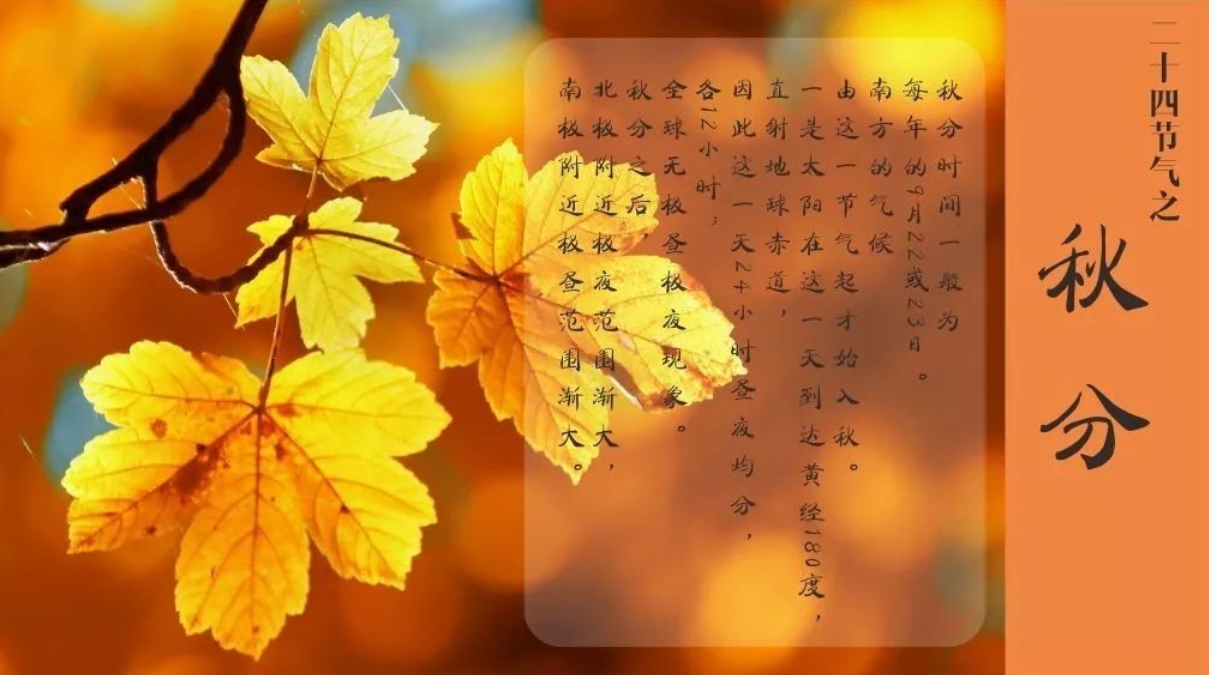 二十四节气之
秋分
秋分时间一般为
每年的9月22或23日。
南方的气候
由这一节气起才始入秋。
一是太阳在这一天到达黄经180度，
直射地球赤道，
因此这一天24小时昼夜均分，
各12小时；
全球无极昼极夜现象。
秋分之后，
北极附近极夜范围渐大，
南极附近极昼范围渐大。